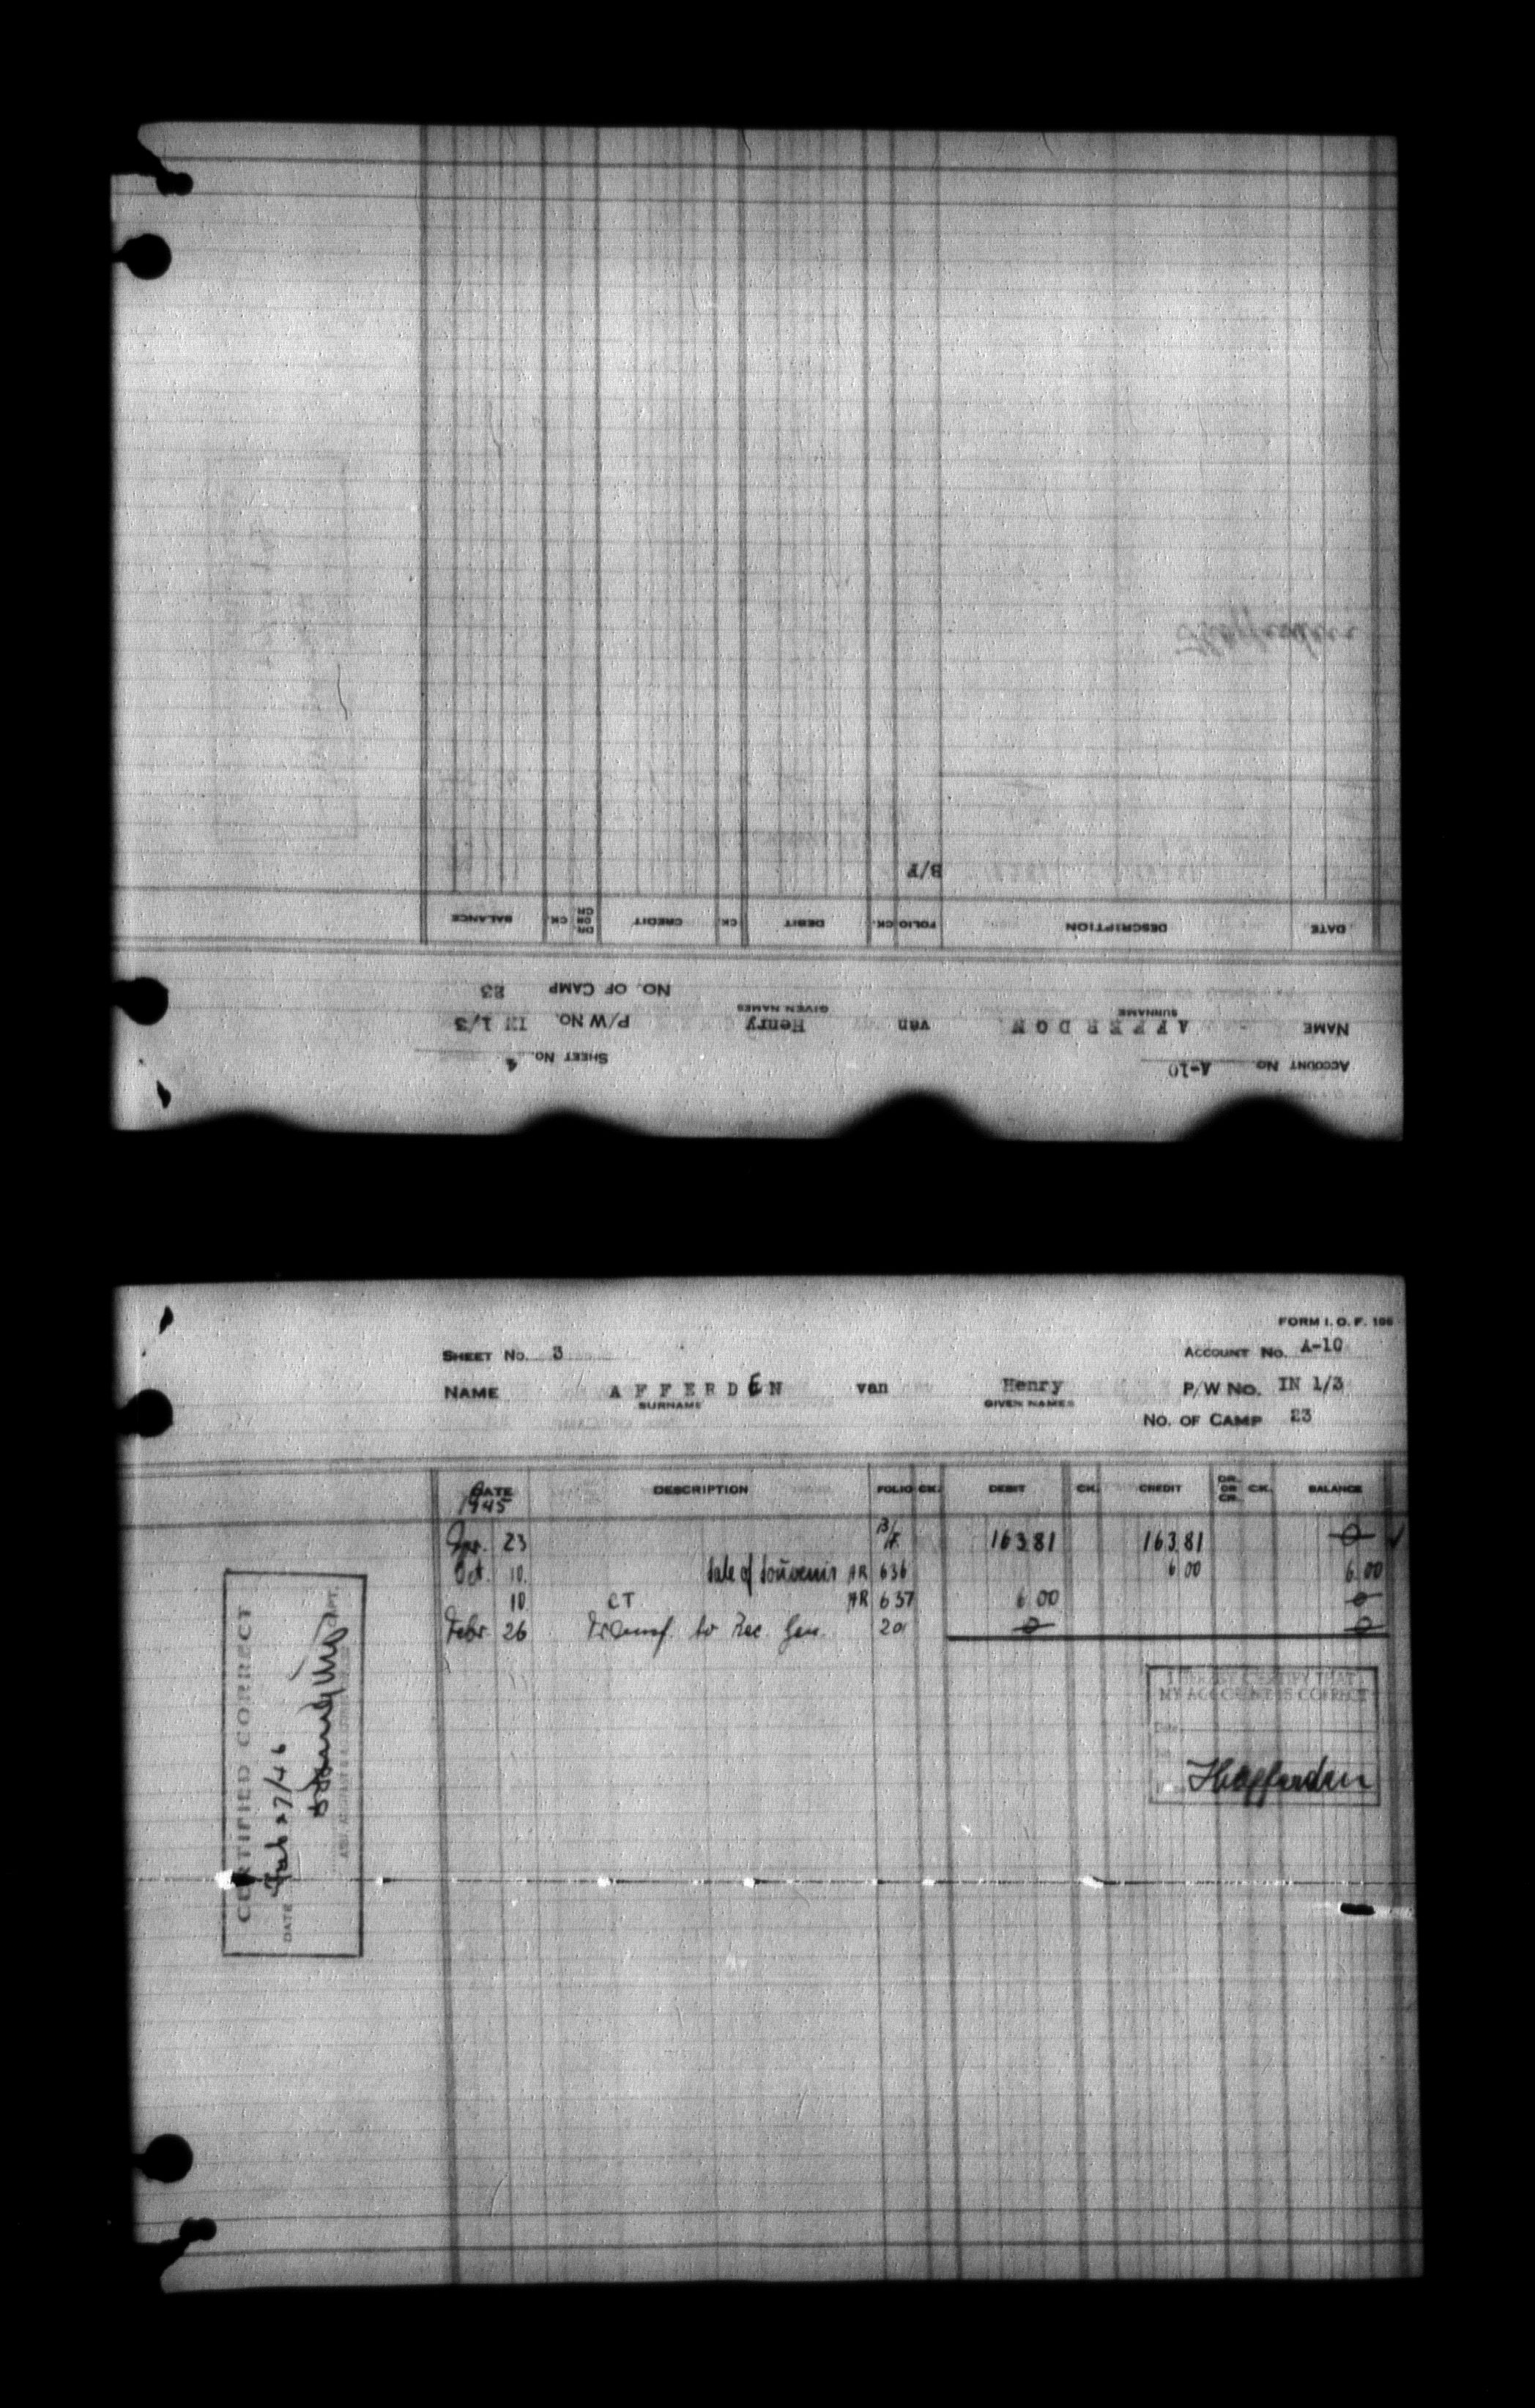 ACCOUNT NO. A-10 SHEET NO. 4
NAME AFFERDON van Henry P/W NO. IN 1/3
SURNAME GIVEN NAMES NO. OF CAMP 23
DATE DESCRIPTION FOLIO CK. DEBIT CK. CREDIT DR. OR CR. CK. BALANCE
B/F
FORM I. O. F. 106
SHEET NO. 3 ACCOUNT NO. A-10
NAME AFFERDEN van Henry P/W NO. IN 1/3
SURNAME GIVEN NAMES
NO. OF CAMP 23
DATE DESCRIPTION FOLIO CK. DEBIT CK. CREDIT DR. OR CR. CK. BALANCE
1945
23 B/F 163.81 163.81 0 ✓
Oct. 10. Sale of Souvenir AR 636 6 00 6.00
10 CT AR 637 6 00 0
Febr 26 Transf. to Rec. Gen. 20 0 0
I HEREBY CERTIFY THAT
MY ACCOUNT IS CORRECT
Date
HvAfferden
CERTIFIED CORRECT
DATE Feb 27/46
CAPT.